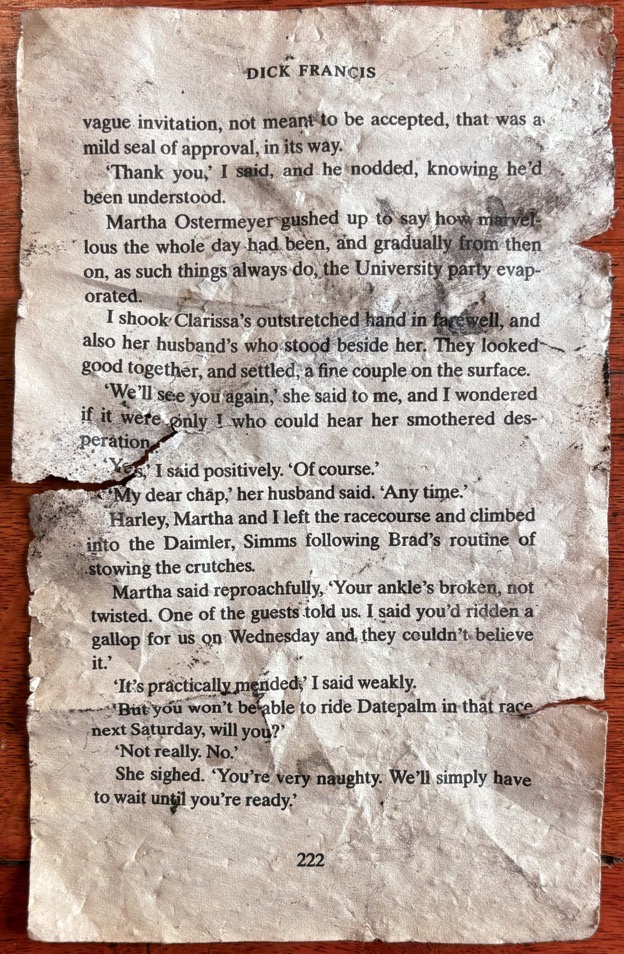 DICK FRANCIS
vague invitation, not meant to be accepted, that was a
mild seal of approval, in its way.
‘Thank you,’ I said, and he nodded, knowing he’d
been understood.
Martha Ostermeyer gushed up to say how marvel-
lous the whole day had been, and gradually from then
on, as such things always do, the University party evap-
orated.
I shook Clarissa’s outstretched hand in farewell, and
also her husband’s who stood beside her. They looked
good together, and settled, a fine couple on the surface.
‘We’ll see you again,’ she said to me, and I wondered
if it were only I who could hear her smothered des-
peration.
‘Yes,’ I said positively. ‘Of course.’
‘My dear chap,’ her husband said. ‘Any time.’
Harley, Martha and I left the racecourse and climbed
into the Daimler, Simms following Brad’s routine of
stowing the crutches.
Martha said reproachfully, ‘Your ankle’s broken, not
twisted. One of the guests told us. I said you’d ridden a
gallop for us on Wednesday and they couldn’t believe
it.’
‘It’s practically mended,’ I said weakly.
‘But you won’t be able to ride Datepalm in that race
next Saturday, will you?’
‘Not really. No.’
She sighed. ‘You’re very naughty. We’ll simply have
to wait until you’re ready.’
222